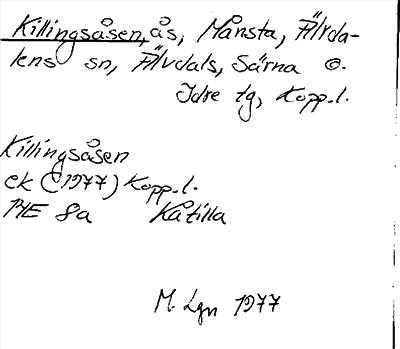 Killingsåsen, ås, Månsta, Älvda-
lens sn, Älvdals, Särna o.
Idre tg, Kopp.l.
Killingsåsen
ek (1977) Kopp.l.
14E 8a Kåtilla
M. Lgn 1977